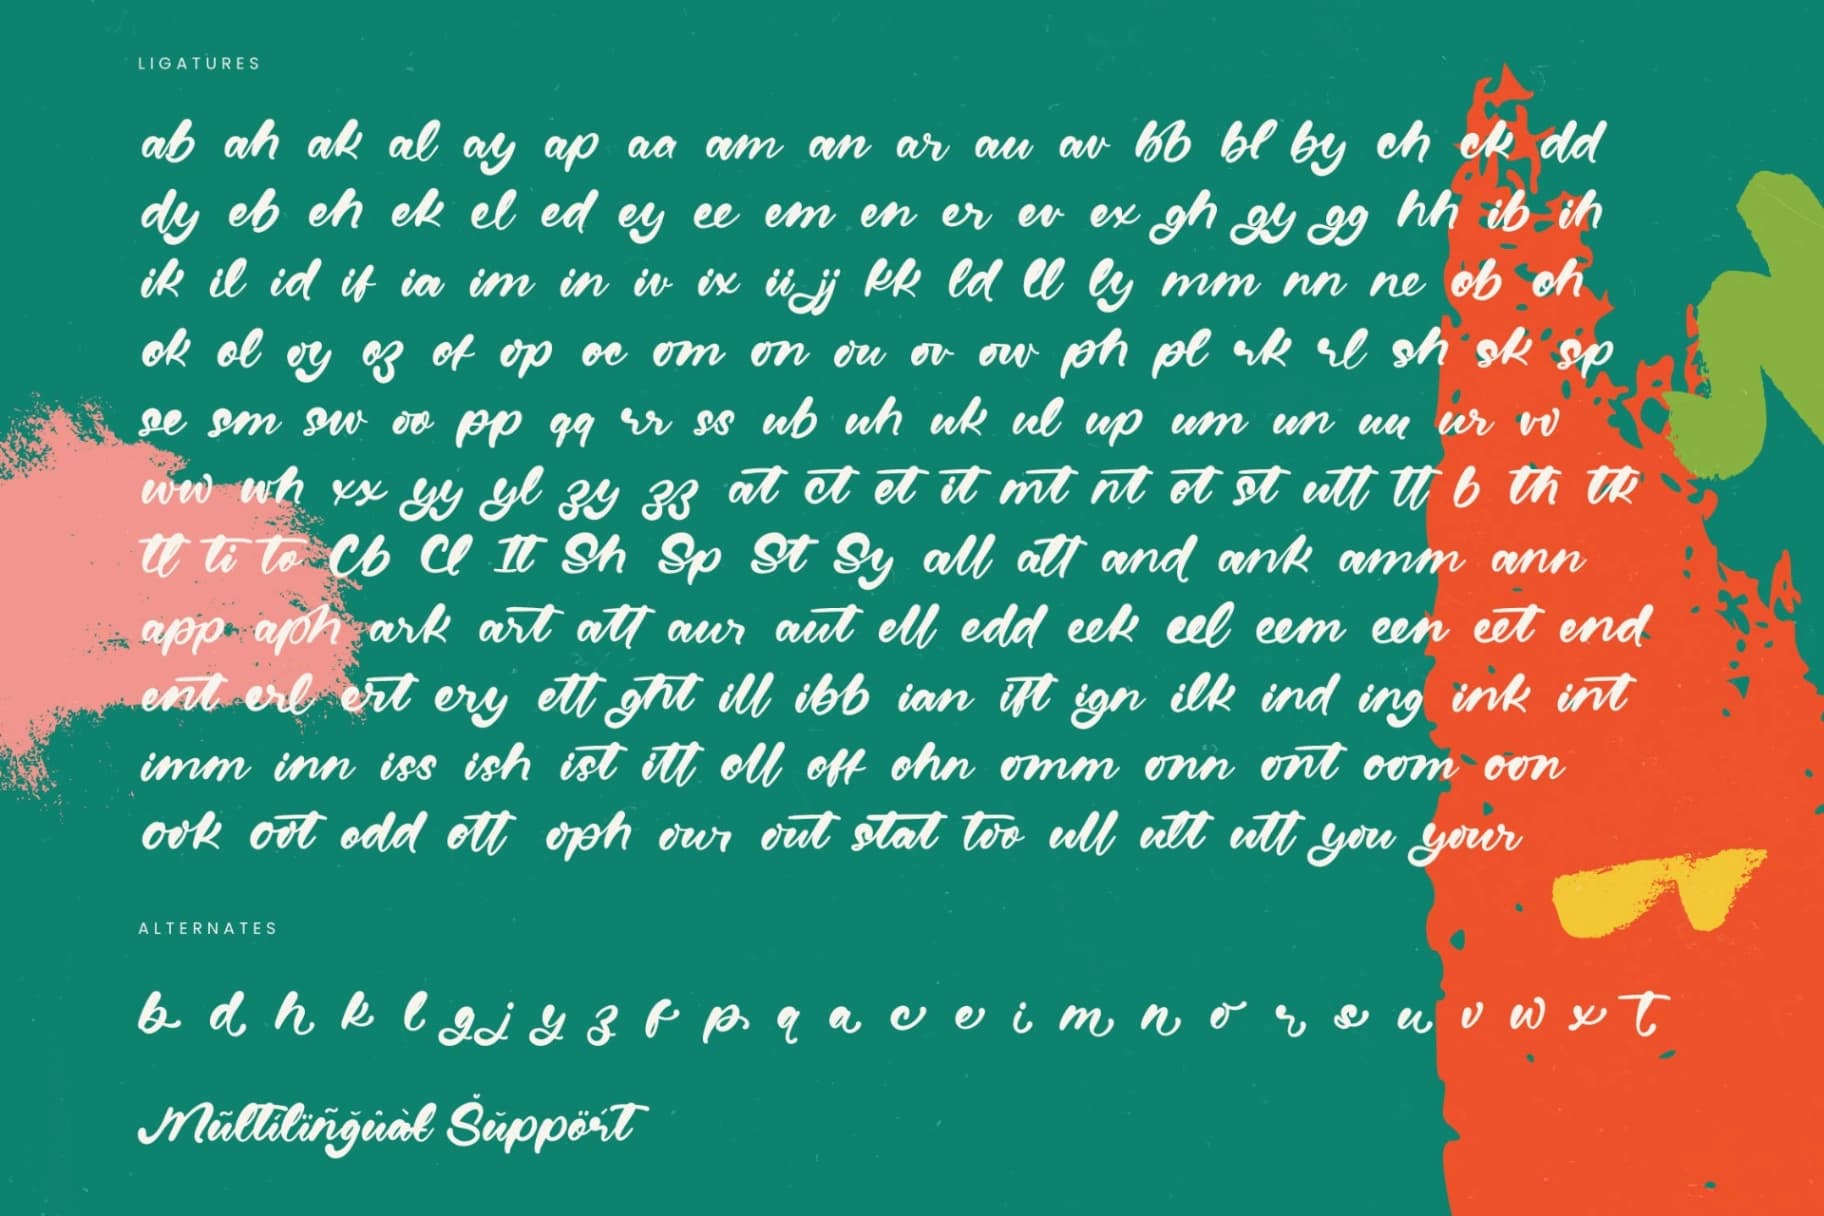 LIGATURES
ab ah ak al ay ap aa am an ar au av bb bl by ch ck dd
dy eb eh ek el ed ey ee em en er ev ex gh gy gg hh ib ih
ik il id if ia im in iv ix ii jj kk ld ll ly mm nn ne ob oh
ok ol oy oz of op oc om on ou ov ow ph pl rk rl sh sk sp
se sm sw oo pp qq rr ss ub uh uk ul up um un uu ur vv
ww wh xx yy yl zy zz at ct et it mt nt ot st utt tt b th tk
tl ti to Cb Cl It Sh Sp St Sy all att and ank amm ann
app aph ark art atf aur aut ell edd eek eel eem een eet end
ent erl ert ery ett ght ill ibb ian ift ign ilk ind ing ink int
imm inn iss ish ist itt oll off ohn omm onn ont oom oon
ook oot odd ott oph our out stat too ull ult utt you your
ALTERNATES
b d h k l g j y z f p q a c e i m n o r s u v w x t
Mũltílïñğûàł Šŭppöŕt